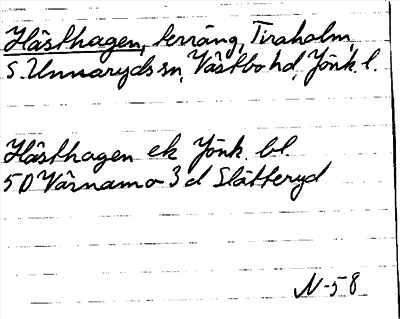 Hästhagen, terräng, Tiraholm,
S. Unnaryds sn, Västbo hd, Jönk. l.
Hästhagen ek Jönk. bl.
5D Värnamo 3d Slätteryd
N-58